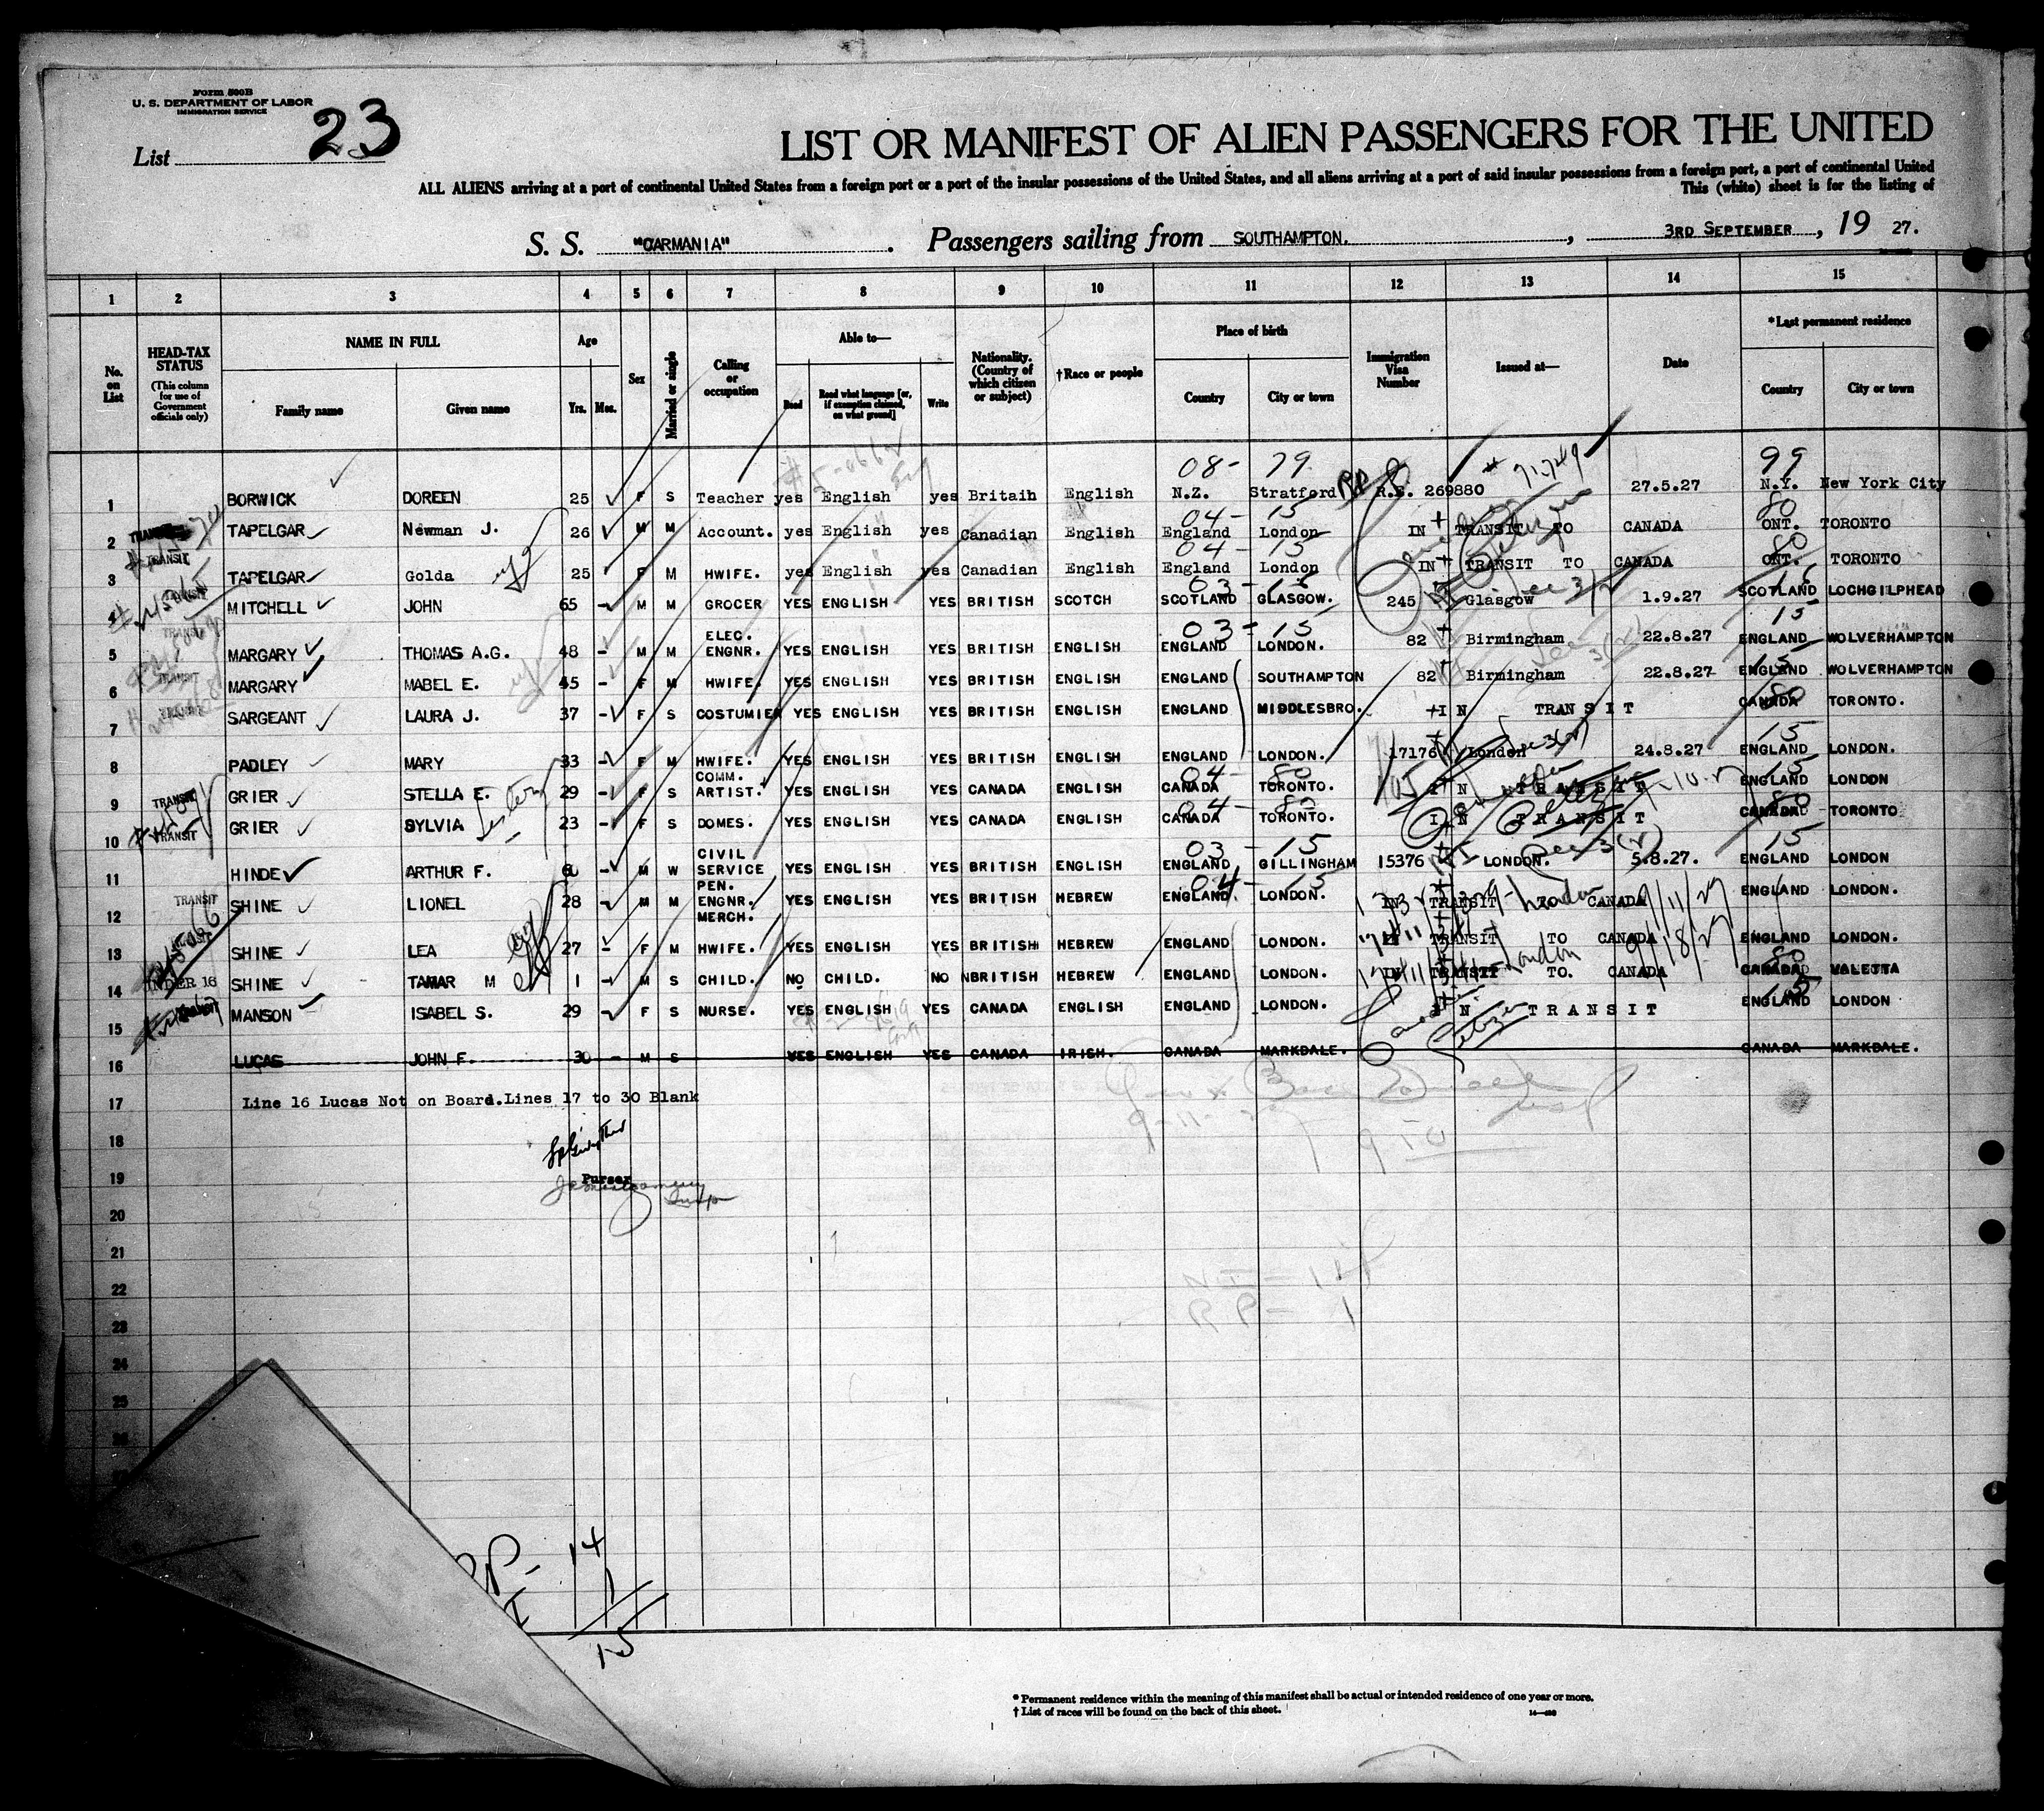 Form 500B
U. S. DEPARTMENT OF LABOR
IMMIGRATION SERVICE
List 23
LIST OR MANIFEST OF ALIEN PASSENGERS FOR THE UNITED
ALL ALIENS arriving at a port of continental United States from a foreign port or a port of the insular possessions of the United States, and all aliens arriving at a port of said insular possessions from a foreign port, a port of continental United
This (white) sheet is for the listing of
S. S. "CARMANIA". Passengers sailing from SOUTHAMPTON. , 3RD SEPTEMBER , 19 27.
1 2 3 4 5 6 7 8 9 10 11 12 13 14 15
No. on List
HEAD-TAX STATUS (This column for use of Government officials only)
NAME IN FULL Family name Given name
Age Yrs. Mos.
Sex
Married or single
Calling or occupation
Able to— Read Read what language [or, if exemption claimed, on what ground] Write
Nationality. (Country of which citizen or subject)
†Race or people
Place of birth Country City or town
Immigration Visa Number
Issued at—
Date
*Last permanent residence Country City or town
08- 79 99
1 BORWICK DOREEN 25 F S Teacher yes English yes Britain English N.Z. Stratford R.P. 269880 27.5.27 N.Y. New York City
04- 15 80
2 TRANSIT TAPELGAR Newman J. 26 M M Account. yes English yes Canadian English England London IN TRANSIT TO CANADA ONT. TORONTO
04- 15 80
3 TRANSIT TAPELGAR Golda 25 F M HWIFE. yes English yes Canadian English England London IN TRANSIT TO CANADA ONT. TORONTO
03- 15 15
4 MITCHELL JOHN 65 - M M GROCER YES ENGLISH YES BRITISH SCOTCH SCOTLAND GLASGOW. 245 Glasgow 1.9.27 SCOTLAND LOCHGILPHEAD
03- 15 15
5 TRANSIT MARGARY THOMAS A.G. 48 - M M ELEC. ENGNR. YES ENGLISH YES BRITISH ENGLISH ENGLAND LONDON. 82 Birmingham 22.8.27 ENGLAND WOLVERHAMPTON
6 TRANSIT MARGARY MABEL E. 45 - F M HWIFE. YES ENGLISH YES BRITISH ENGLISH ENGLAND SOUTHAMPTON 82 Birmingham 22.8.27 ENGLAND WOLVERHAMPTON
80
7 TRANSIT SARGEANT LAURA J. 37 - F S COSTUMIER YES ENGLISH YES BRITISH ENGLISH ENGLAND MIDDLESBRO. IN TRANSIT CANADA TORONTO.
15
8 PADLEY MARY 33 - F M HWIFE. YES ENGLISH YES BRITISH ENGLISH ENGLAND LONDON. 17176 London 24.8.27 ENGLAND LONDON.
04- 80 15
9 TRANSIT GRIER STELLA E. 29 - F S COMM. ARTIST. YES ENGLISH YES CANADA ENGLISH CANADA TORONTO. IN TRANSIT ENGLAND LONDON
04- 80
10 TRANSIT GRIER SYLVIA 23 - F S DOMES. YES ENGLISH YES CANADA ENGLISH CANADA TORONTO. IN TRANSIT CANADA TORONTO
03- 15 15
11 HINDE ARTHUR F. 60 - M W CIVIL SERVICE PEN. YES ENGLISH YES BRITISH ENGLISH ENGLAND GILLINGHAM 15376 LONDON. 5.8.27. ENGLAND LONDON
04- 15
12 TRANSIT SHINE LIONEL 28 - M M ENGNR. MERCH. YES ENGLISH YES BRITISH HEBREW ENGLAND. LONDON. IN TRANSIT TO CANADA ENGLAND LONDON.
13 SHINE LEA 27 - F M HWIFE. YES ENGLISH YES BRITISH HEBREW ENGLAND LONDON. IN TRANSIT TO CANADA ENGLAND LONDON.
14 UNDER 16 SHINE TAMAR M 1 - M S CHILD. NO CHILD. NO BRITISH HEBREW ENGLAND LONDON. IN TRANSIT TO. CANADA CANADA VALETTA
15 MANSON ISABEL S. 29 - F S NURSE. YES ENGLISH YES CANADA ENGLISH ENGLAND LONDON. IN TRANSIT ENGLAND LONDON
16 LUCAS JOHN F. 30 - M S YES ENGLISH YES CANADA IRISH. CANADA MARKDALE. CANADA MARKDALE.
17 Line 16 Lucas Not on Board.Lines 17 to 30 Blank
18
19 Purser
20
21
22
23
24
25
26
PP- 14
I 1
15
* Permanent residence within the meaning of this manifest shall be actual or intended residence of one year or more.
† List of races will be found on the back of this sheet.